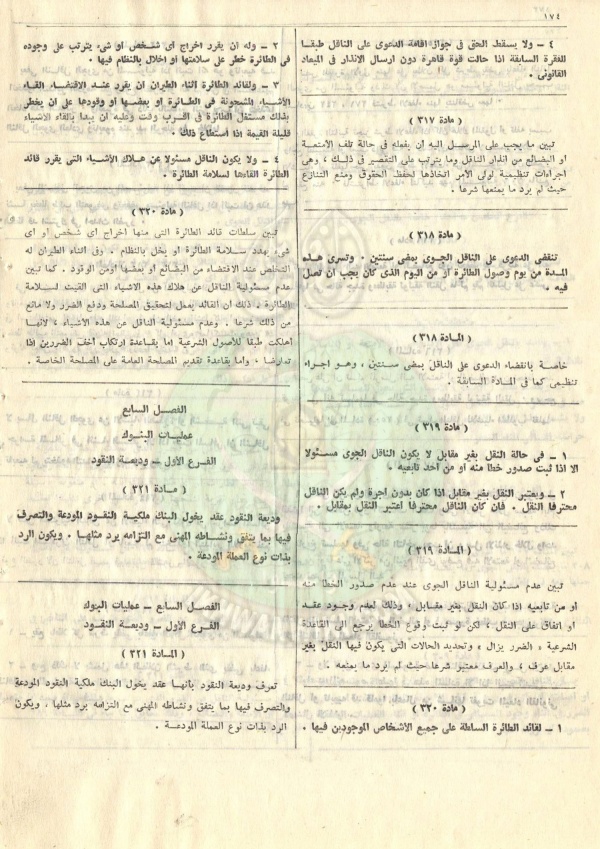 ١٧٤
٤ – ولا يسقط الحق فى جواز اقامة الدعوى على الناقل طبقا
للفقرة السابقة اذا حالت قوة قاهرة دون ارسال الانذار فى الميعاد
القانونى .
( مادة ٣١٧ )
تبين ما يجب على المرسل اليه ان يفعله فى حالة تلف الأمتعة
او البضائع من انذار الناقل وما يترتب على التقصير فى ذلك ، وهى
اجراءات تنظيمية لولى الأمر اتخاذها لحفظ الحقوق ومنع التنازع
حيث لم يرد ما يمنعها شرعا .
( مادة ٣١٨ )
تنقضى الدعوى على الناقل الجوى بمضى سنتين . وتسرى هذه
المدة من يوم وصول الطائرة أو من اليوم الذى كان يجب ان تصل
فيه .
( المادة ٣١٨ )
خاصة بانقضاء الدعوى على الناقل بمضى سنتين ، وهو اجراء
تنظيمى كما فى المادة السابقة .
( مادة ٣١٩ )
١ – فى حالة النقل بغير مقابل لا يكون الناقل الجوى مسئولا
الا اذا ثبت صدور خطا منه أو من احد تابعيه .
٢ – ويعتبر النقل بغير مقابل اذا كان بدون اجرة ولم يكن الناقل
محترفا النقل . فان كان الناقل محترفا اعتبر النقل بمقابل .
( المادة ٣١٩ )
تبين عدم مسئولية الناقل الجوى عند عدم صدور الخطا منه
أو من تابعيه اذا كان النقل بغير مقابل ، وذلك لعدم وجود عقد
او اتفاق على النقل ، لكن لو ثبت وقوع الخطا يرجع الى القاعدة
الشرعية « الضرر يزال » وتحديد الحالات التى يكون فيها النقل بغير
مقابل عرف ، والعرف معتبر شرعا حيث لم يرد ما يمنعه .
( مادة ٣٢٠ )
١ – لقائد الطائرة السلطة على جميع الأشخاص الموجودين فيها .
٢ – وله ان يقرر اخراج أى شخص أو شىء يترتب على وجوده
فى الطائرة خطر على سلامتها أو اخلال بالنظام فيها .
٣ – ولقائد الطائرة أثناء الطيران أن يقرر عند الاقتضاء القاء
الأشياء المشحونة فى الطائرة أو بعضها أو وقودها على أن يخطر
بذلك مستغل الطائرة فى أقرب وقت وعليه أن يبدا بالقاء الأشياء
قليلة القيمة اذا استطاع ذلك .
٤ – ولا يكون الناقل مسئولا عن هلاك الأشياء التى يقرر قائد
الطائرة القاءها لسلامة الطائرة .
( مادة ٣٢٠ )
تبين سلطات قائد الطائرة التى منها اخراج أى شخص أو أى
شىء يهدد سلامة الطائرة أو يخل بالنظام . وفى أثناء الطيران له
التخلص عند الاقتضاء من البضائع أو بعضها أو من الوقود . كما تبين
عدم مسئولية الناقل عن هلاك هذه الاشياء التى القيت لسلامة
الطائرة . ذلك أن القائد يعمل لتحقيق المصلحة ودفع الضرر ولا مانع
من ذلك شرعا . وعدم مسئولية الناقل عن هذه الأشياء ، لأنها
أهلكت طبقا للأصول الشرعية اما بقاعدة ارتكاب أخف الضررين اذا
تعارضا ، واما بقاعدة تقديم المصلحة العامة على المصلحة الخاصة .
الفصل السابع
عمليات البنوك
الفرع الأول – وديعة النقود
( مادة ٣٢١ )
وديعة النقود عقد يخول البنك ملكية النقود المودعة والتصرف
فيها بما يتفق ونشاطه المهنى مع التزامه برد مثلها . ويكون الرد
بذات نوع العملة المودعة .
الفصل السابع – عمليات البنوك
الفرع الأول – وديعة النقود
( المادة ٣٢١ )
تعرف وديعة النقود بأنها عقد يخول البنك ملكية النقود المودعة
والتصرف فيها بما يتفق ونشاطه المهنى مع التزامه برد مثلها ، ويكون
الرد بذات نوع العملة المودعة .